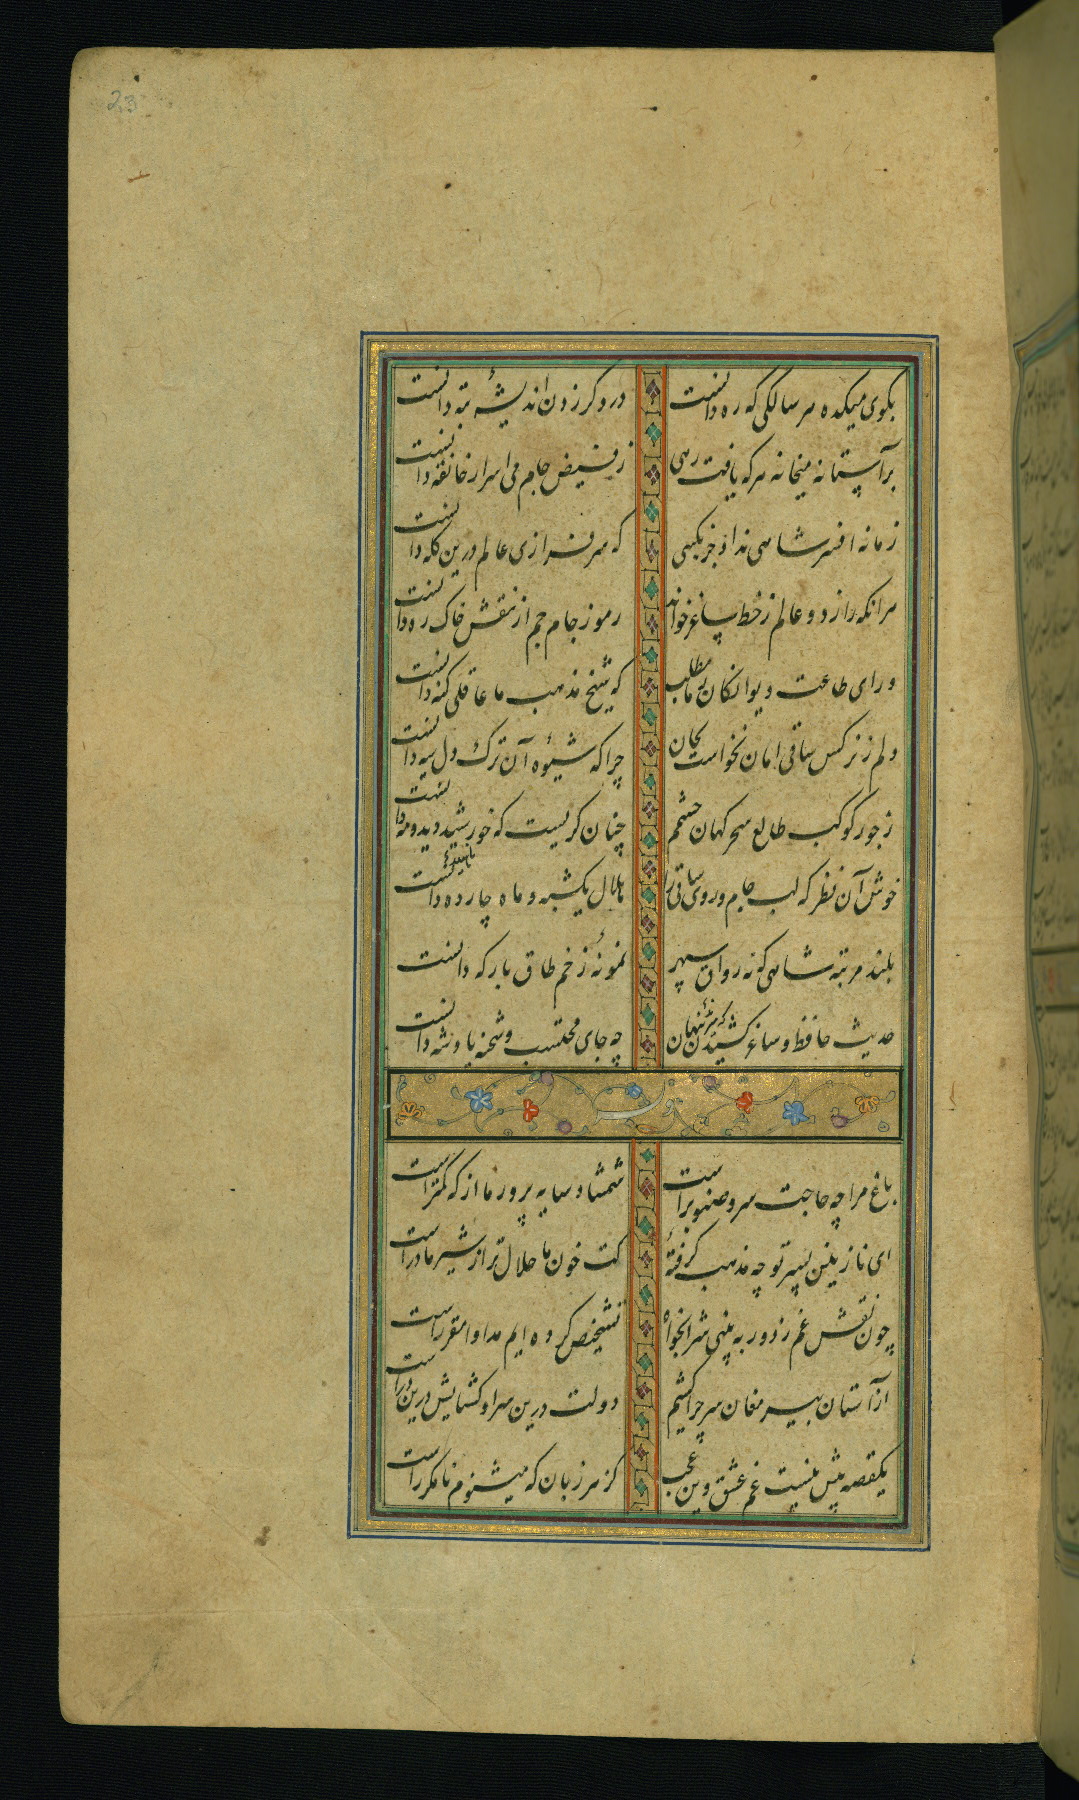 23
بکوی میکده هر سالکی که ره دانست
در دگر زدن اندیشهٔ تبه دانست
بر آستانه میخانه هر که یافت رهی
ز فیض جام می اسرار خانقه دانست
زمانه افسر شاهی نداد جز بکسی
که سرفرازی عالم درین کله دانست
هر انکه راز دو عالم ز خط ساغر خواند
رموز جام جم از نقش خاک ره دانست
ورای طاعت دیوانکان ز ما مطلب
که شیخ مذهب ما عاقلی کنه دانست
دلم ز نرکس ساقی امان نخواست بجان
چرا که شیوهٔ آن ترک دل سیه دانست
ز جور کوکب طالع سحرکهان چشمم
چنان کریست که خورشید دید و مه دانست
خوش آن نظر که لب جام و روی ساقی را
هلال یکشبه و ماه چارده دانست
بلند مرتبه شاهی که نه رواق سپهر
نمونهٔ ز خم طاق بارکه دانست
حدیث حافظ و ساغر کشیدن پنهان
چه جای محتسب و شحنه پادشه دانست
باغ مرا چه حاجت سرو و صنوبر است
شمشاد سایه پرور ما از که کمتر است
ای نازنین پسر تو چه مذهب کرفتهٔ
کت خون ما حلال تر از شیر مادر است
چون نقش غم ز دور به بینی شراب خواه
تشخیص کرده ایم مداوا مقرر است
از آستان پیر مغان سر چرا کشیم
دولت درین سرا و کشایش درین در است
یکقصه بیش نیست غم عشق وین عجب
کز هر زبان که میشنوم نامکرر است